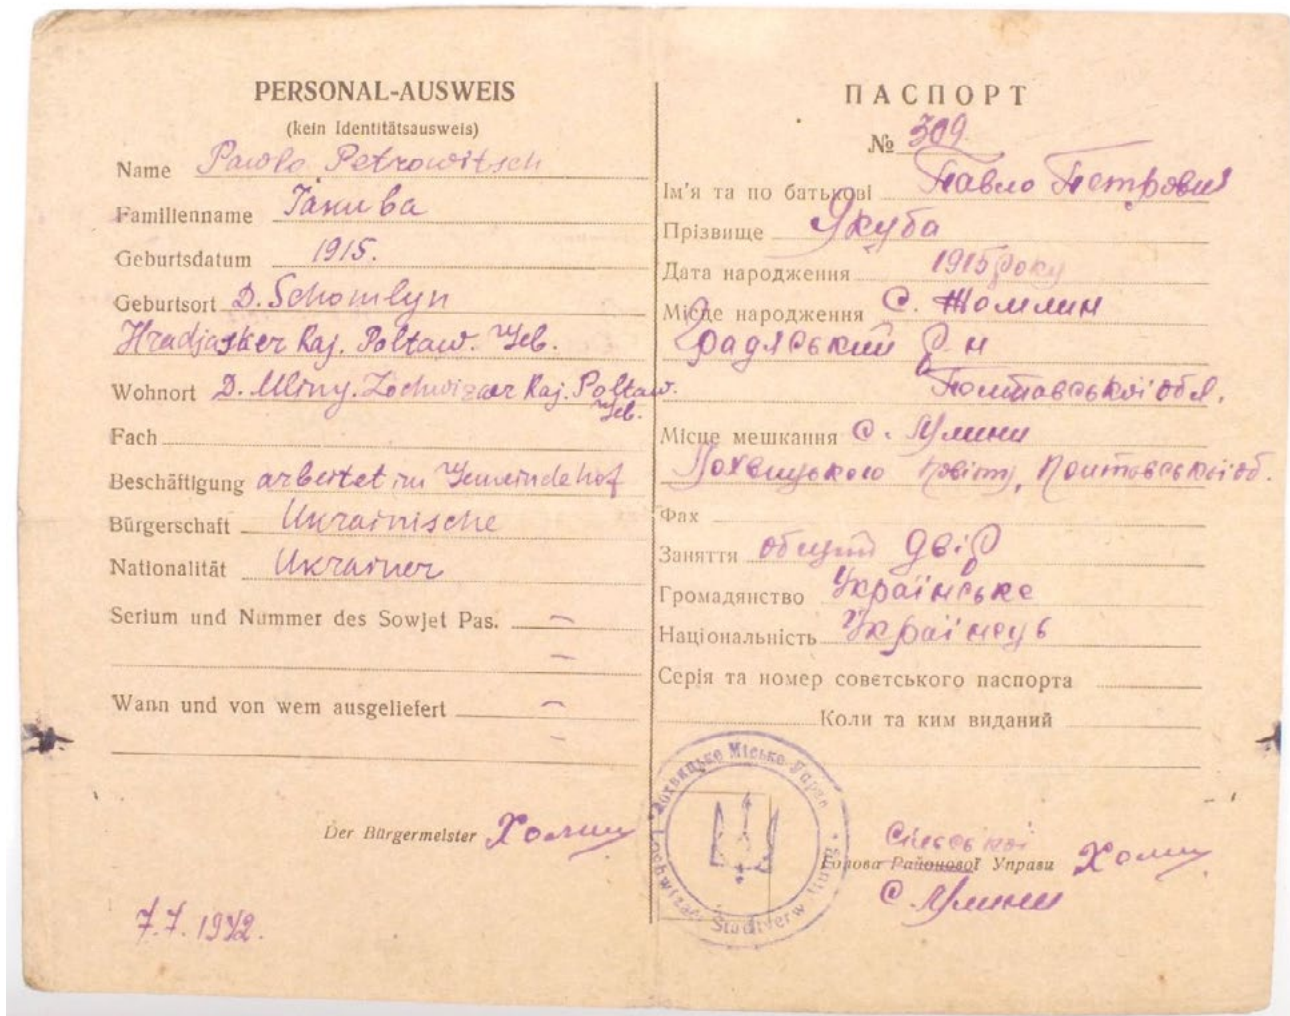 PERSONAL-AUSWEIS
(kein Identitätsausweis)
Name Pawlo Petrowitsch
Familienname Jakuba
Geburtsdatum 1915.
Geburtsort D. Schomlyn
Hradjasker Raj. Poltaw. Geb.
Wohnort D. Mliny. Lochwizaer Raj. Poltaw.
Geb.
Fach
Beschäftigung arbeitet im Gemeindehof
Bürgerschaft Ukrainische
Nationalität Ukrainer
Serium und Nummer des Sowjet Pas. —
—
Wann und von wem ausgeliefert —
—
Der Bürgermeister
7.7.1942.
ПАСПОРТ
№ 309
Ім'я та по батькові Павло Петрович
Прізвище Якуба
Дата народження 1915 року
Місце народження С. Жомлин
Градяський р-н
Полтавської обл.
Місце мешкання С. Млини
Лохвицького повіту, Полтавської об.
Фах
Заняття общий двір
Громадянство Українське
Національність Українець
Серія та номер совєтського паспорта
Коли та ким виданий
Лохвицьке Місько Управ
Lochwizaer Stadtverw
Сільської
Голова Районової Управи
С. Млини